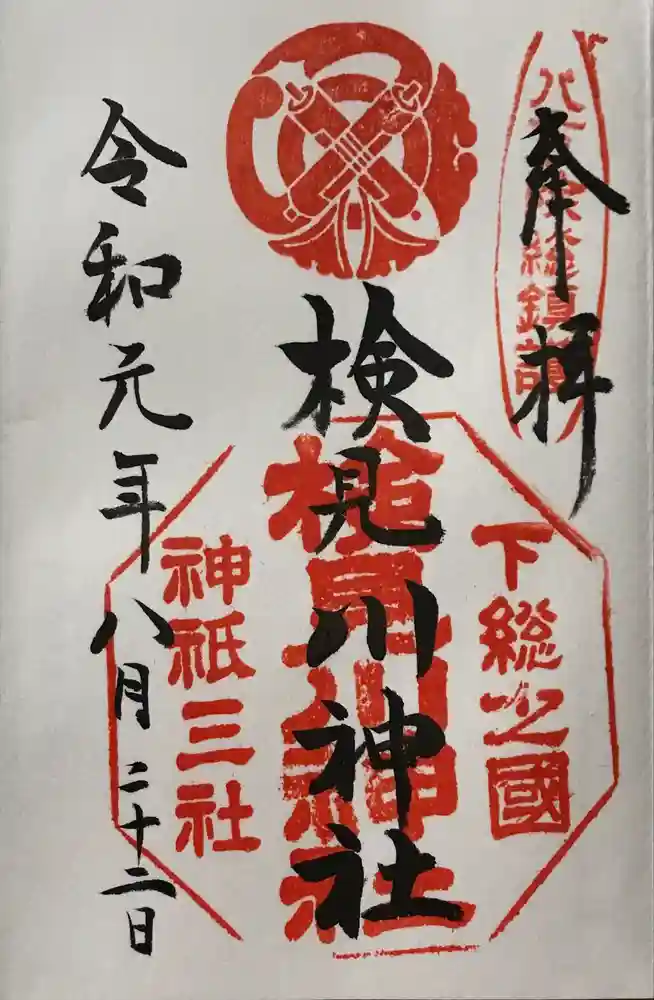 奉拝
八方除総鎮護
下総之國
検見川神社
検見川神社
神祇三社
令和元年八月二十二日